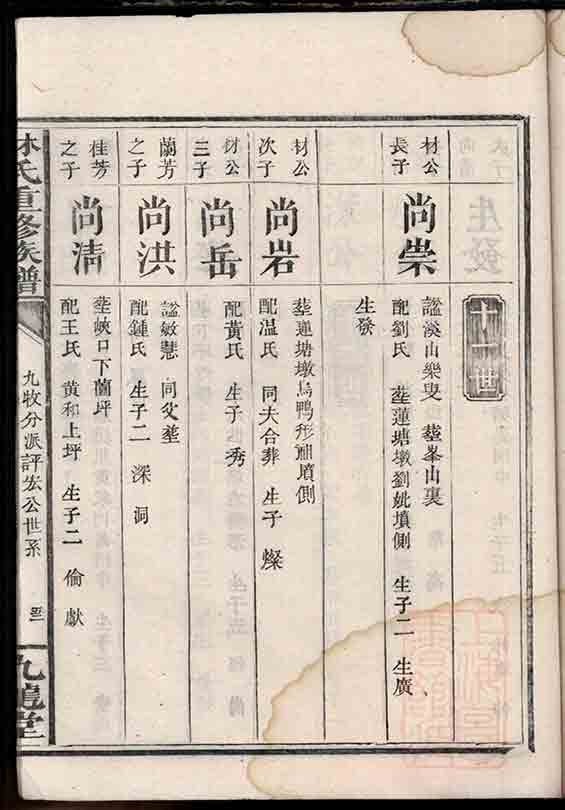 十一世
材公
長子
尚崇
諡溪山樂叟 塟峯山裏
配劉氏 塟蓮塘墩劉妣墳側 生子二 生廣
生發
材公
次子
尚岩
塟蓮塘墩烏鴨形祖墳側
配温氏 同夫合葬 生子 燦
材公
三子
尚岳
配黃氏 生子 秀
蘭芳
之子
尚洪
諡敏慧 同父塟
配鍾氏 生子二 深 洞
桂芳
之子
尚清
塟峽口下蘭坪
配王氏 黃和上坪 生子二 倫 獻
林氏重修族譜
九牧分派評宏公世系
九龍堂